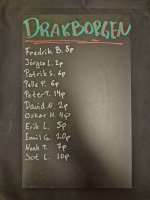 DRAKBORGEN
Fredrik B. 5p
Jörgen L. 2p
Patrik S. 6p
Pelle P. 6p
Peter T. 14p
David N. 2p
Oskar H. 4p
Erik L. 5p
Emil G. 20p
Noah T. 7p
Sot L. 10p